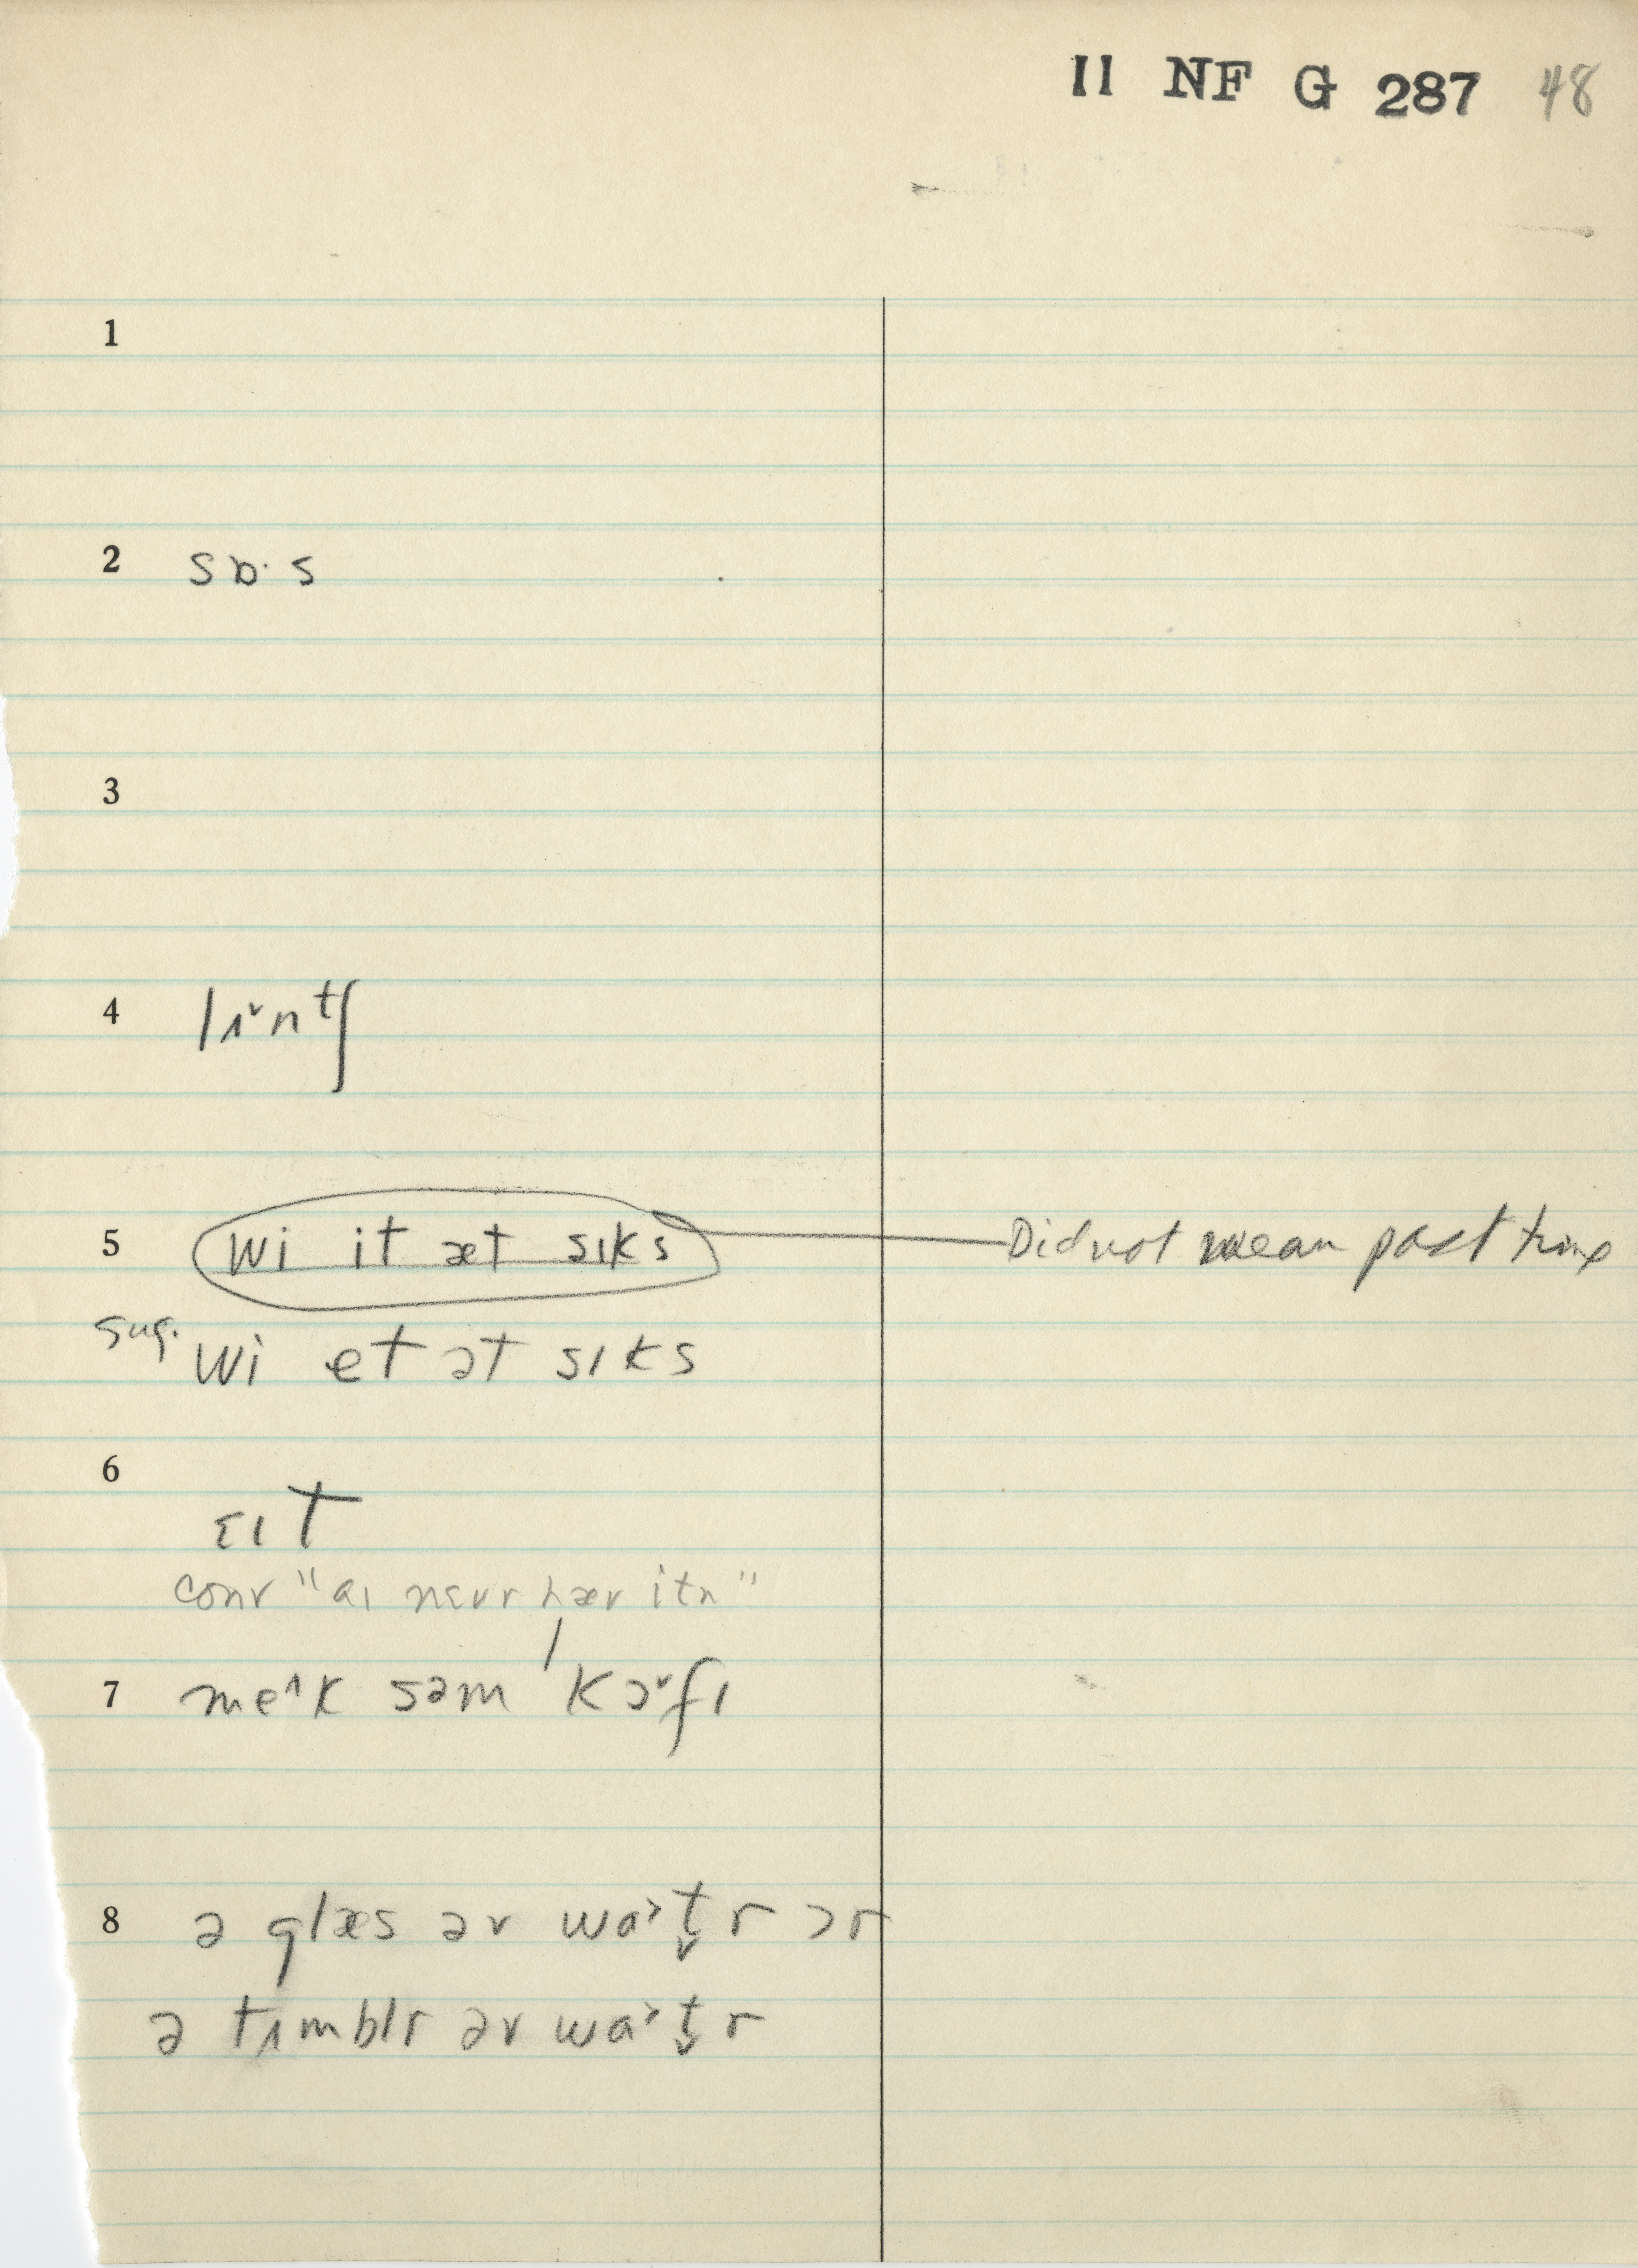 II NF G 287 48
1
2 sɒ· s
3
4 lʌ˅ntʃ
5 wi it æt sɪks Did not mean past time
sug. wi et ət sɪks
6
ɛɪt
conv "aɪ nɛvr hæv itn"
7 me^k səm 'kɔ˅fɪ
8 ə glæs əv wɑ˃t̬r ɔr
ə tʌmblr əv wɑ˃t̬r